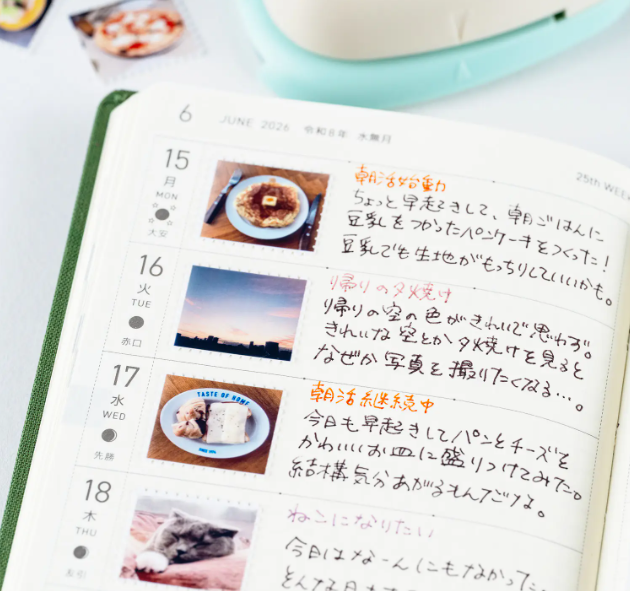 6 JUNE 2026 令和8年 水無月
25th WEEK
15
月
MON
大安
朝活始動
ちょっと早起きして、朝ごはんに
豆乳をつかったパンケーキをつくった！
豆乳でも生地がもっちりしていいかも。
16
火
TUE
赤口
帰りの夕焼け
帰りの空の色がきれいで思わず。
きれいな空とか夕焼けを見ると
なぜか写真を撮りたくなる…。
17
水
WED
先勝
TASTE OF HOME
朝活継続中
今日も早起きしてパンとチーズを
かわいいお皿に盛りつけてみた。
結構気分あがるもんだける。
18
木
THU
友引
ねこになりたい
今日はなーんにもなかった…